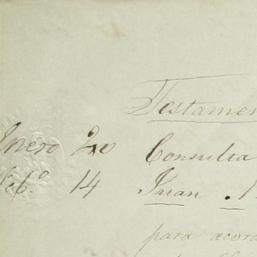 Testamen
Enero 20 Consulta
Feb.º 14 Juan
para acor